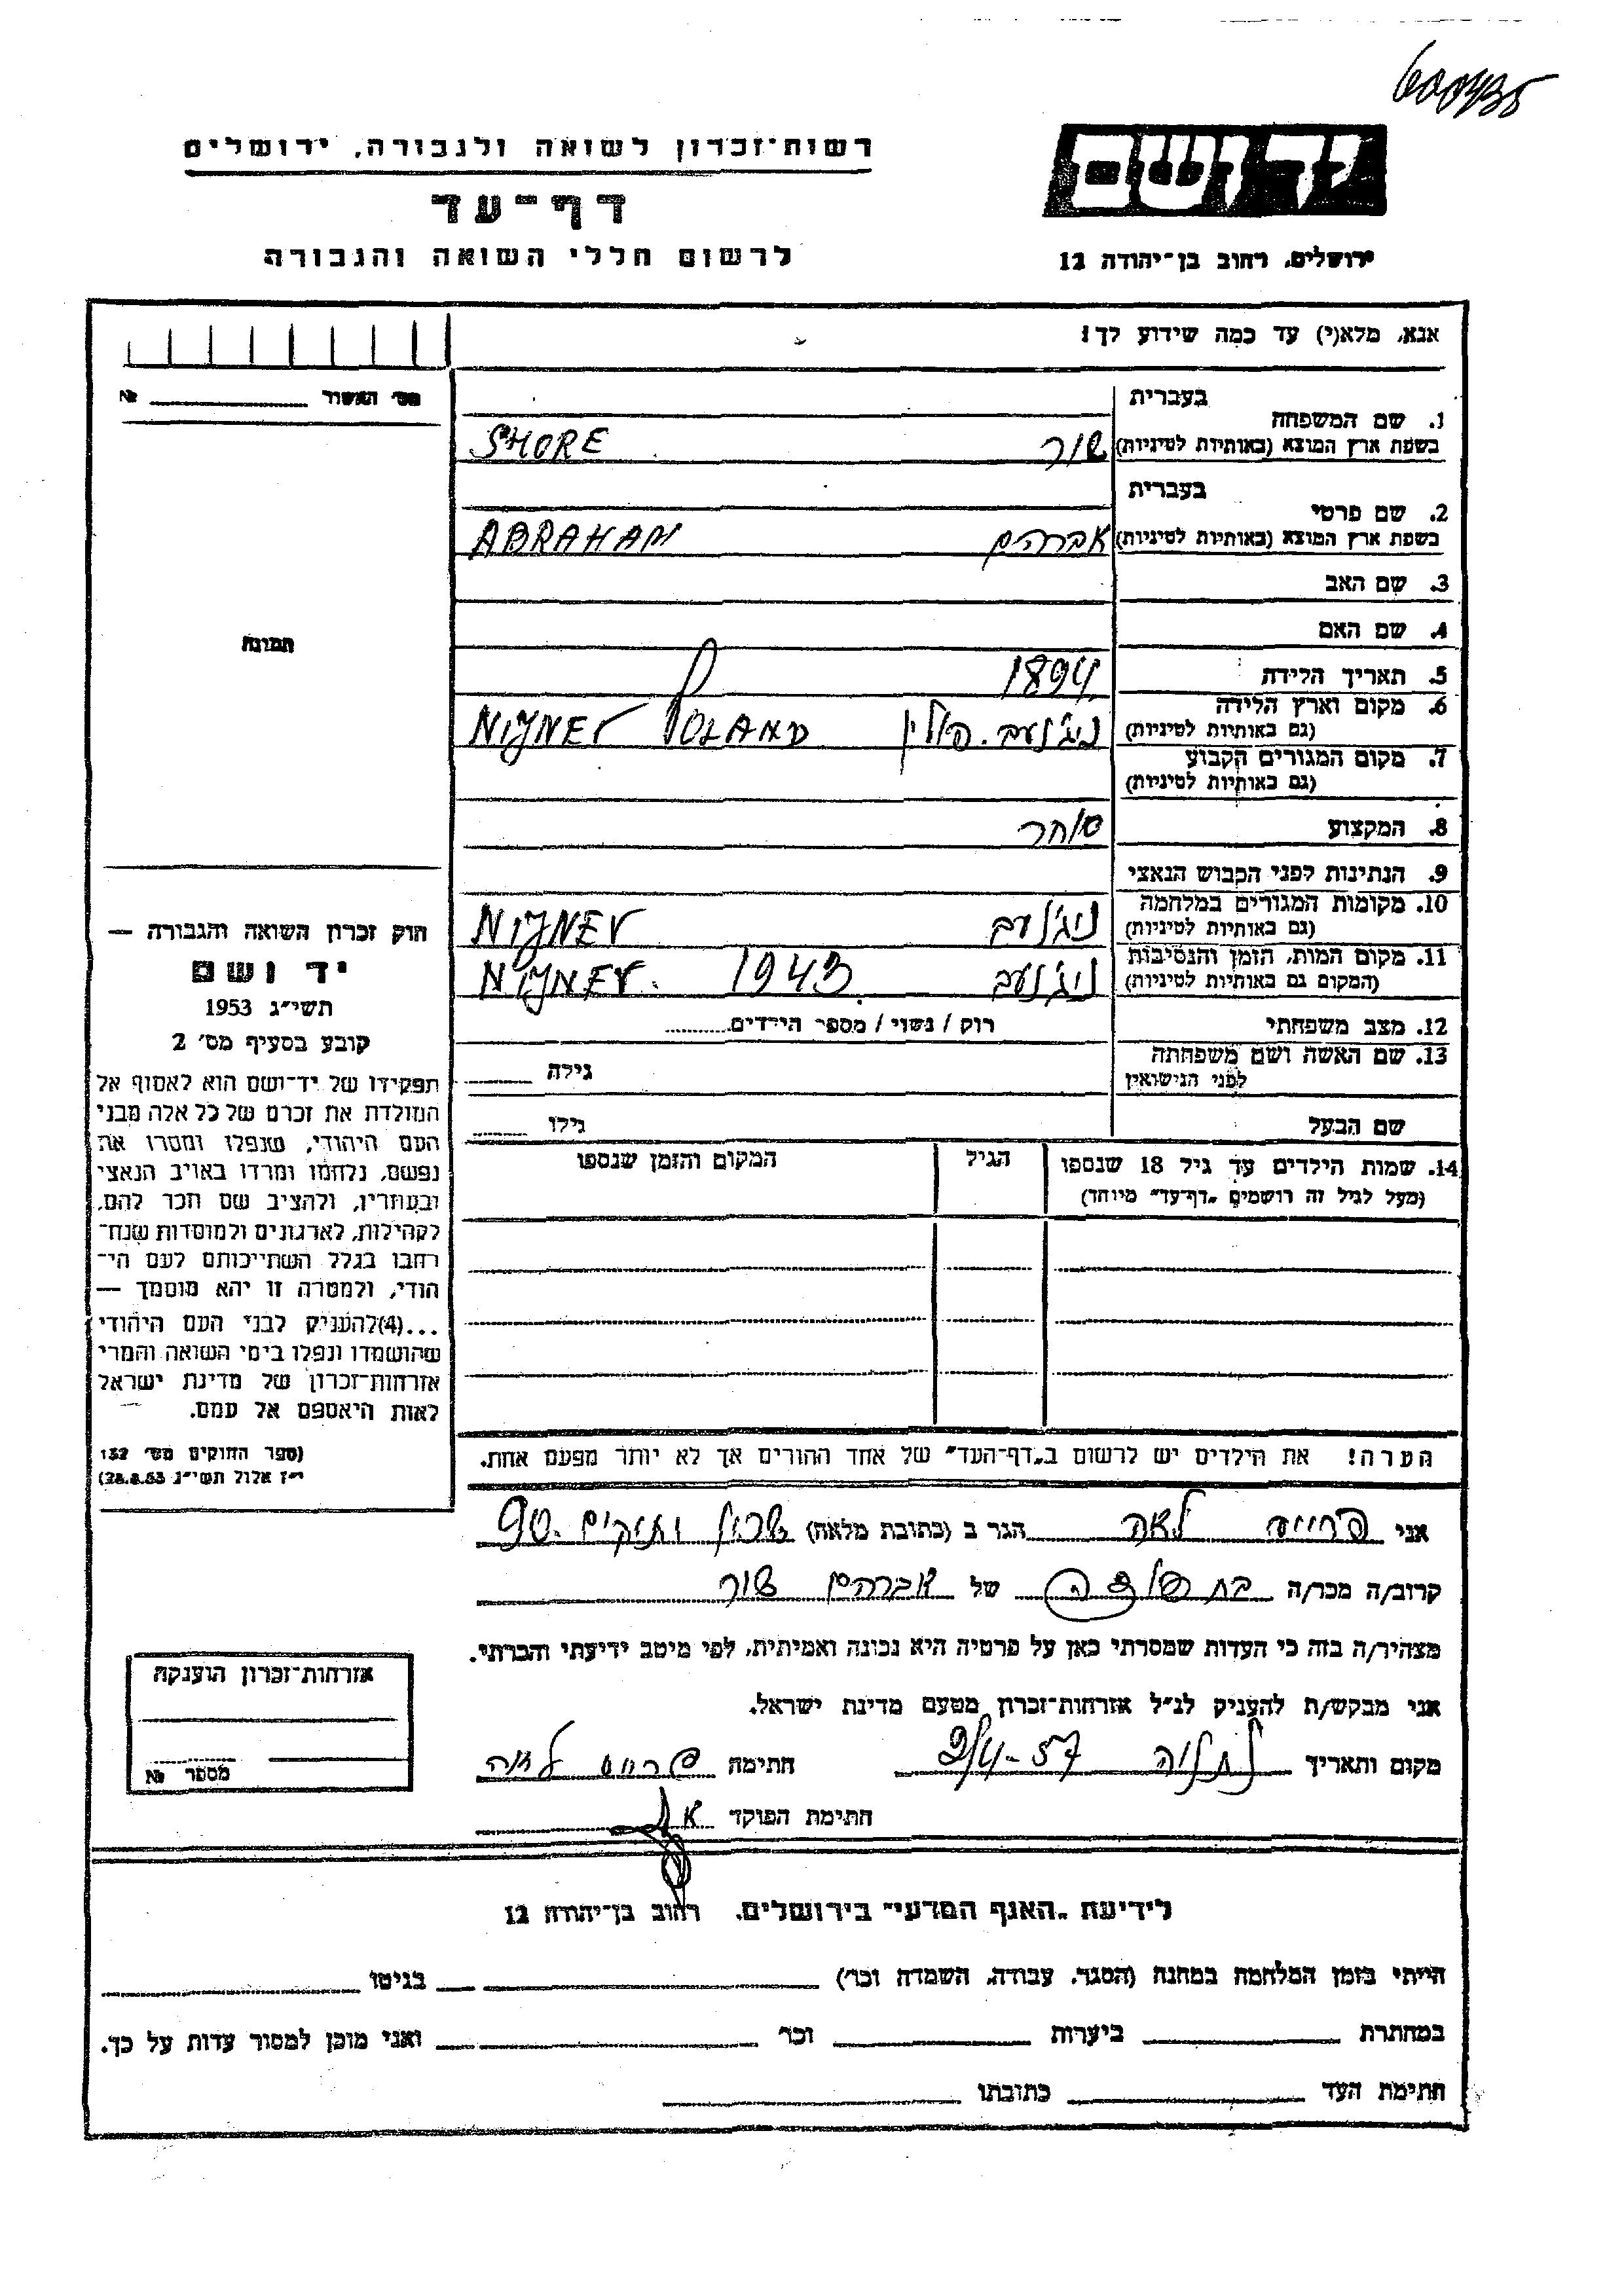 600435
רשות־זכרון לשואה ולגבורה, ירושלים
דף־עד
לרשום חללי השואה והגבורה
יד ושם
ירושלים, רחוב בן־יהודה 12
אנא, מלא(י) עד כמה שידוע לך!
מס׳ האשור № 
תמונה
1. שם המשפחה
בעברית
בשפת ארץ המוצא (באותיות לטיניות) שור SHORE
2. שם פרטי
בעברית
בשפת ארץ המוצא (באותיות לטיניות) אברהם ABRAHAM
3. שם האב
4. שם האם
5. תאריך הלידה 1894
6. מקום וארץ הלידה
(גם באותיות לטיניות) ניז'נעב. פולין NIJNEV POLAND
7. מקום המגורים הקבוע
(גם באותיות לטיניות)
8. המקצוע סוחר
9. הנתינות לפני הכבוש הנאצי
10. מקומות המגורים במלחמה
(גם באותיות לטיניות) ניז'נעב NIJNEV
11. מקום המות, הזמן והנסיבות
(המקום גם באותיות לטיניות) ניז'נעב NIJNEV. 1943
12. מצב משפחתי רוק / נשוי / מספר הילדים
13. שם האשה ושם משפחתה
לפני הנישואין גילה
שם הבעל גילו
14. שמות הילדים עד גיל 18 שנספו הגיל המקום והזמן שנספו
(מעל לגיל זה רושמים „דף־עד״ מיוחד)
הערה! את הילדים יש לרשום ב„דף־העד״ של אחד ההורים אך לא יותר מפעם אחת.
חוק זכרון השואה והגבורה —
יד ושם
תשי״ג 1953
קובע בסעיף מס׳ 2
תפקידו של יד־ושם הוא לאסוף אל
המולדת את זכרם של כל אלה מבני
העם היהודי, שנפלו ומסרו את
נפשם, נלחמו ומרדו באויב הנאצי
ובעוזריו, ולהציב שם וזכר להם,
לקהילות, לארגונים ולמוסדות שנח־
רבו בגלל השתייכותם לעם הי־
הודי, ולמטרה זו יהא מוסמך —
...(4) להעניק לבני העם היהודי
שהושמדו ונפלו בימי השואה והמרי
אזרחות־זכרון של מדינת ישראל
לאות היאספם אל עמם.
(ספר החוקים מס׳ 132
י״ז אלול תשי״ג 28.8.53)
אני לאה הגר ב (כתובת מלאה) ותיקים 90
קרוב/ה מכר/ה בת של אברהם שור
מצהיר/ה בזה כי העדות שמסרתי כאן על פרטיה היא נכונה ואמיתית, לפי מיטב ידיעתי והכרתי.
אני מבקש/ת להעניק לנ״ל אזרחות־זכרון מטעם מדינת ישראל.
מקום ותאריך נתניה 9/4-57 חתימה לאה
חתימת הפוקד
אזרחות־זכרון הוענקה
מספר №
לידיעת „האגף המדעי״ בירושלים, רחוב בן־יהודה 12
הייתי בזמן המלחמה במחנה (הסגר, עבודה, השמדה וכו׳) בגיטו
במחתרת ביערות וכו׳ ואני מוכן למסור עדות על כך.
חתימת העד כתובתו